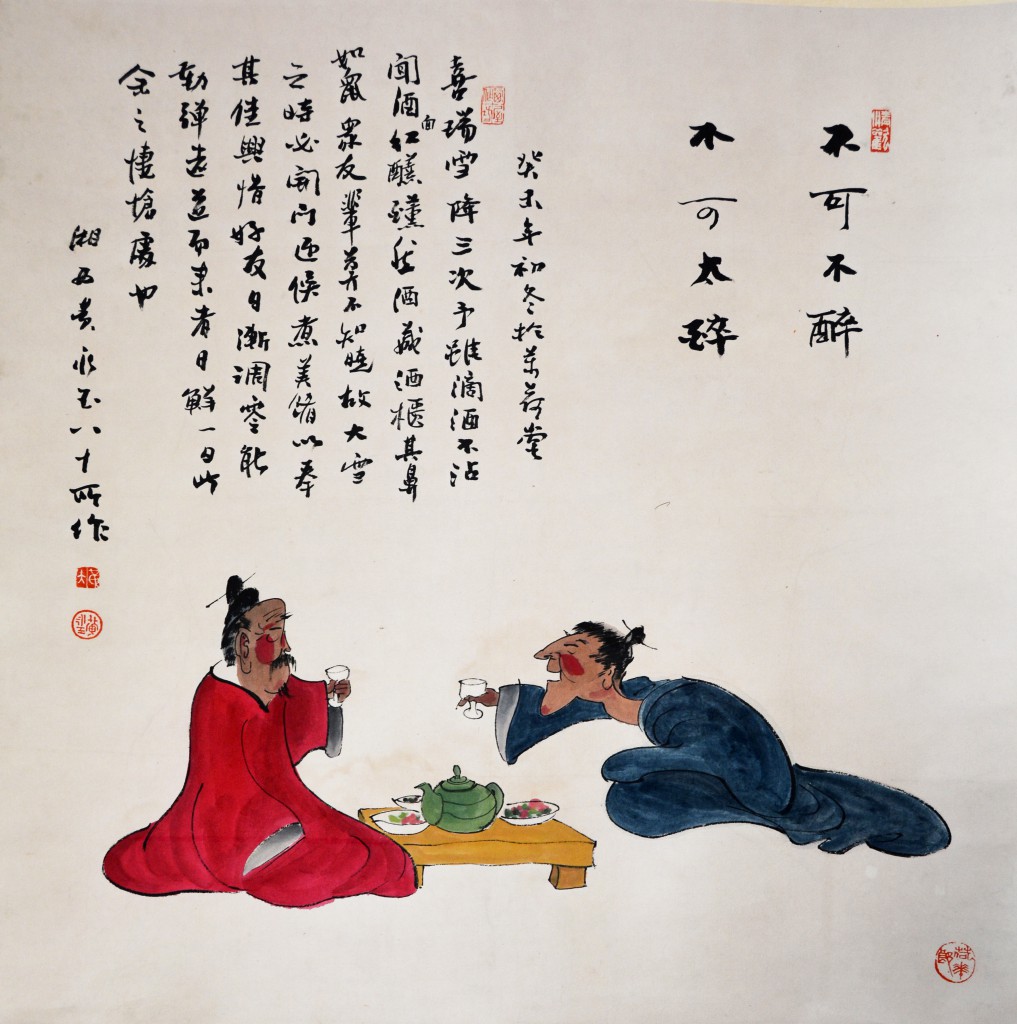 不可不醉
不可太醉
癸未年初冬於萬荷堂
喜瑞雪降三次予雖滴酒不沾
聞酒面紅醺醺然酒藏酒櫃其鼻
如鼠眾友輩莫不知曉故大雪
之時必開門迎候煮美餚以奉
其佳興惜好友日漸凋零能
動彈遠道而來者日鮮一日此
余之悽愴處也
湘西黃永玉八十所作
黃永玉
荷花郎